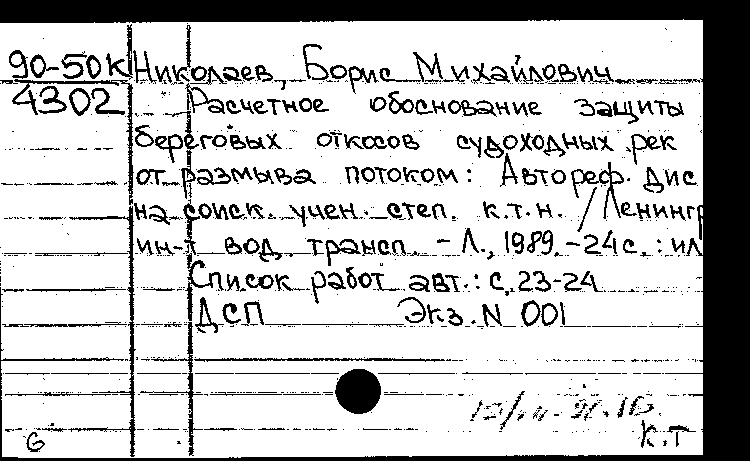 90-50К Николаев, Борис Михайлович
4302 Расчетное обоснование защиты
береговых откосов судоходных рек
от размыва потоком: Автореф. дис
на соиск. учен. степ. к.т.н. / Ленингр
ин-т вод. трансп. - Л., 1989. - 24 с. : ил
Список работ авт.: с. 23-24
ДСП Экз. N 001
К.Т
6